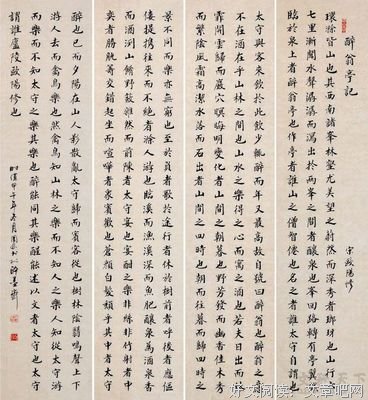 醉翁亭記
宋歐陽修
環滁皆山也其西南諸峯林壑尤美望之蔚然而深秀者琅琊也山行六
七里漸聞水聲潺潺而瀉出於兩峯之間者釀泉也峯回路轉有亭翼然
臨於泉上者醉翁亭也作亭者誰山之僧智僊也名之者誰太守自謂也
太守與客來飲於此飲少輒醉而年又最高故自號曰醉翁也醉翁之意
不在酒在乎山林之間也山水之樂得之心而寓之酒也若夫日出而林
霏開雲歸而巖穴暝晦明變化者山間之朝暮也野芳發而幽香佳木秀
而繁陰風霜高潔水落而石出者山間之四時也朝而往暮而歸四時之
景不同而樂亦無窮也至於負者歌於途行者休於樹前者呼後者應傴
僂提攜往來而不絕者滁人游也臨溪而漁溪深而魚肥釀泉為酒泉香
而酒洌山餚野蔌雜然而前陳者太守宴也宴酣之樂非絲非竹射者中
奕者勝觥籌交錯起坐而諠嘩者眾賓歡也蒼顏白髮頹乎其中者太守
醉也已而夕陽在山人影散亂太守歸而賓客從也樹林陰翳鳴聲上下
游人去而禽鳥樂也然禽鳥知山林之樂而不知人之樂人知從太守游
而樂而不知太守之樂其樂也醉能同其樂醒能述以文者太守也太守
謂誰廬陵歐陽修也
好文阅读：文章吧网